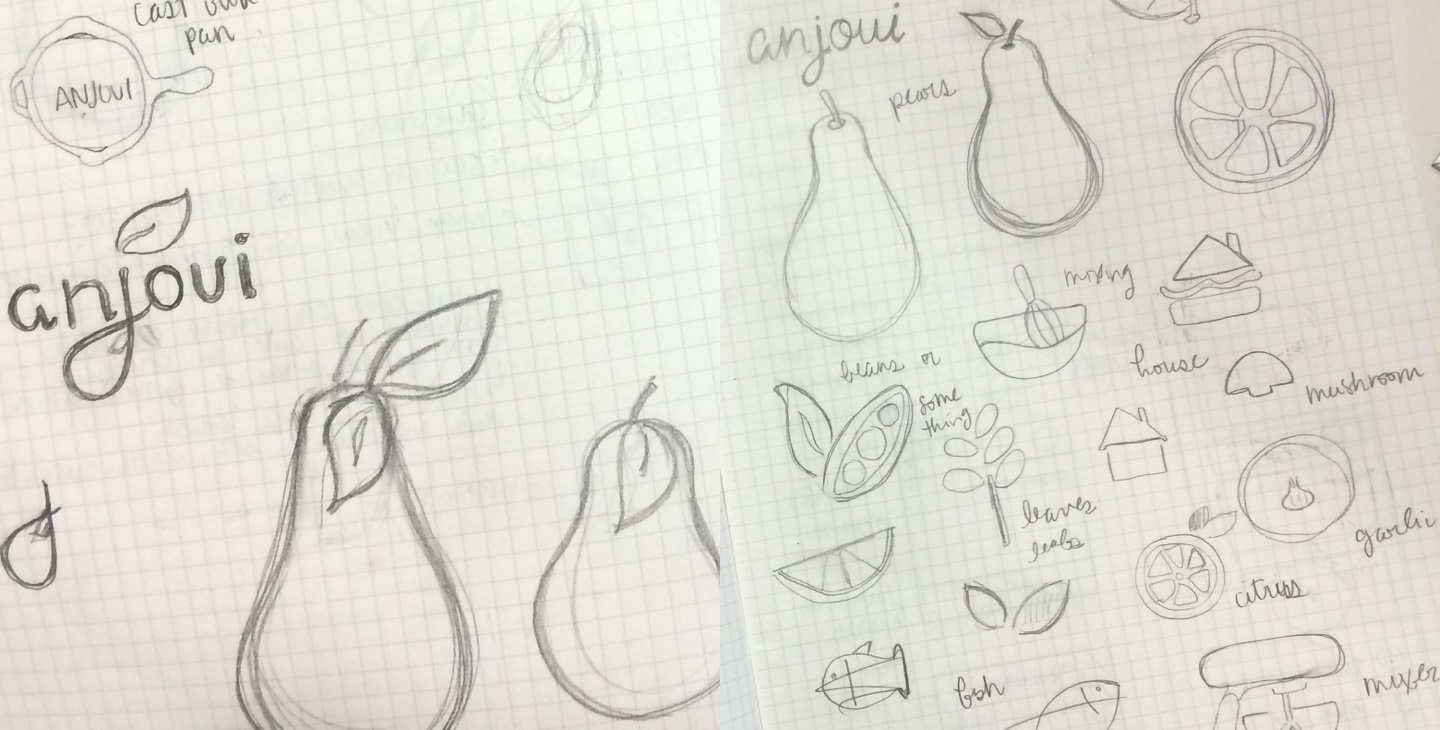 cast iron
pan
ANJOUI
anjoui
anjoui
pears
mixing
house
beans or
some
thing
mushroom
leaves
garlic
citrus
fish
mixer